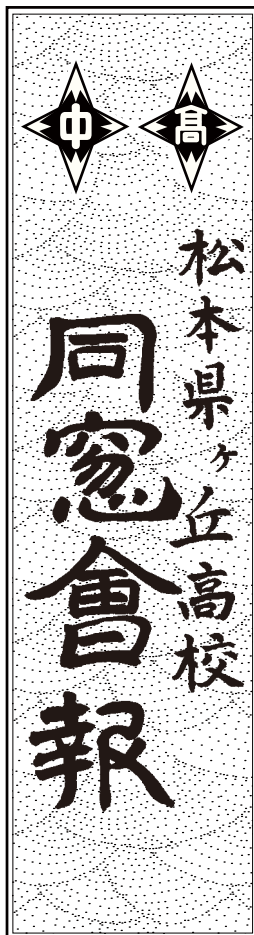 高
中
松本県ヶ丘高校
同窓會報